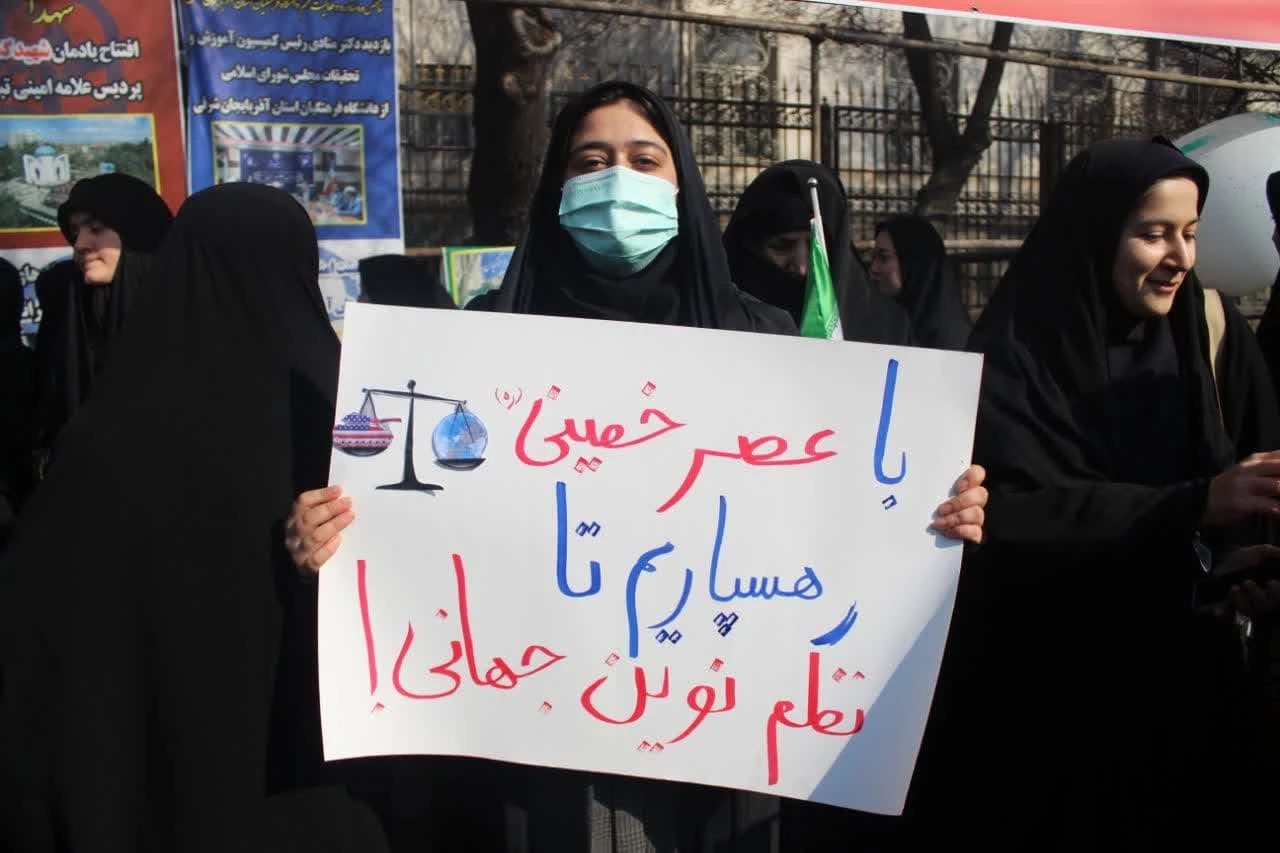 شهدا
افتتاح یادمان شهید
پردیس علامه امینی
بازدید دکتر منادی رئیس کمیسیون آموزش و
تحقیقات مجلس شورای اسلامی
از دانشگاه فرهنگیان استان آذربایجان شرقی
با عصر خمینی (ره)
رهسپاریم تا
نظم نوین جهانی!